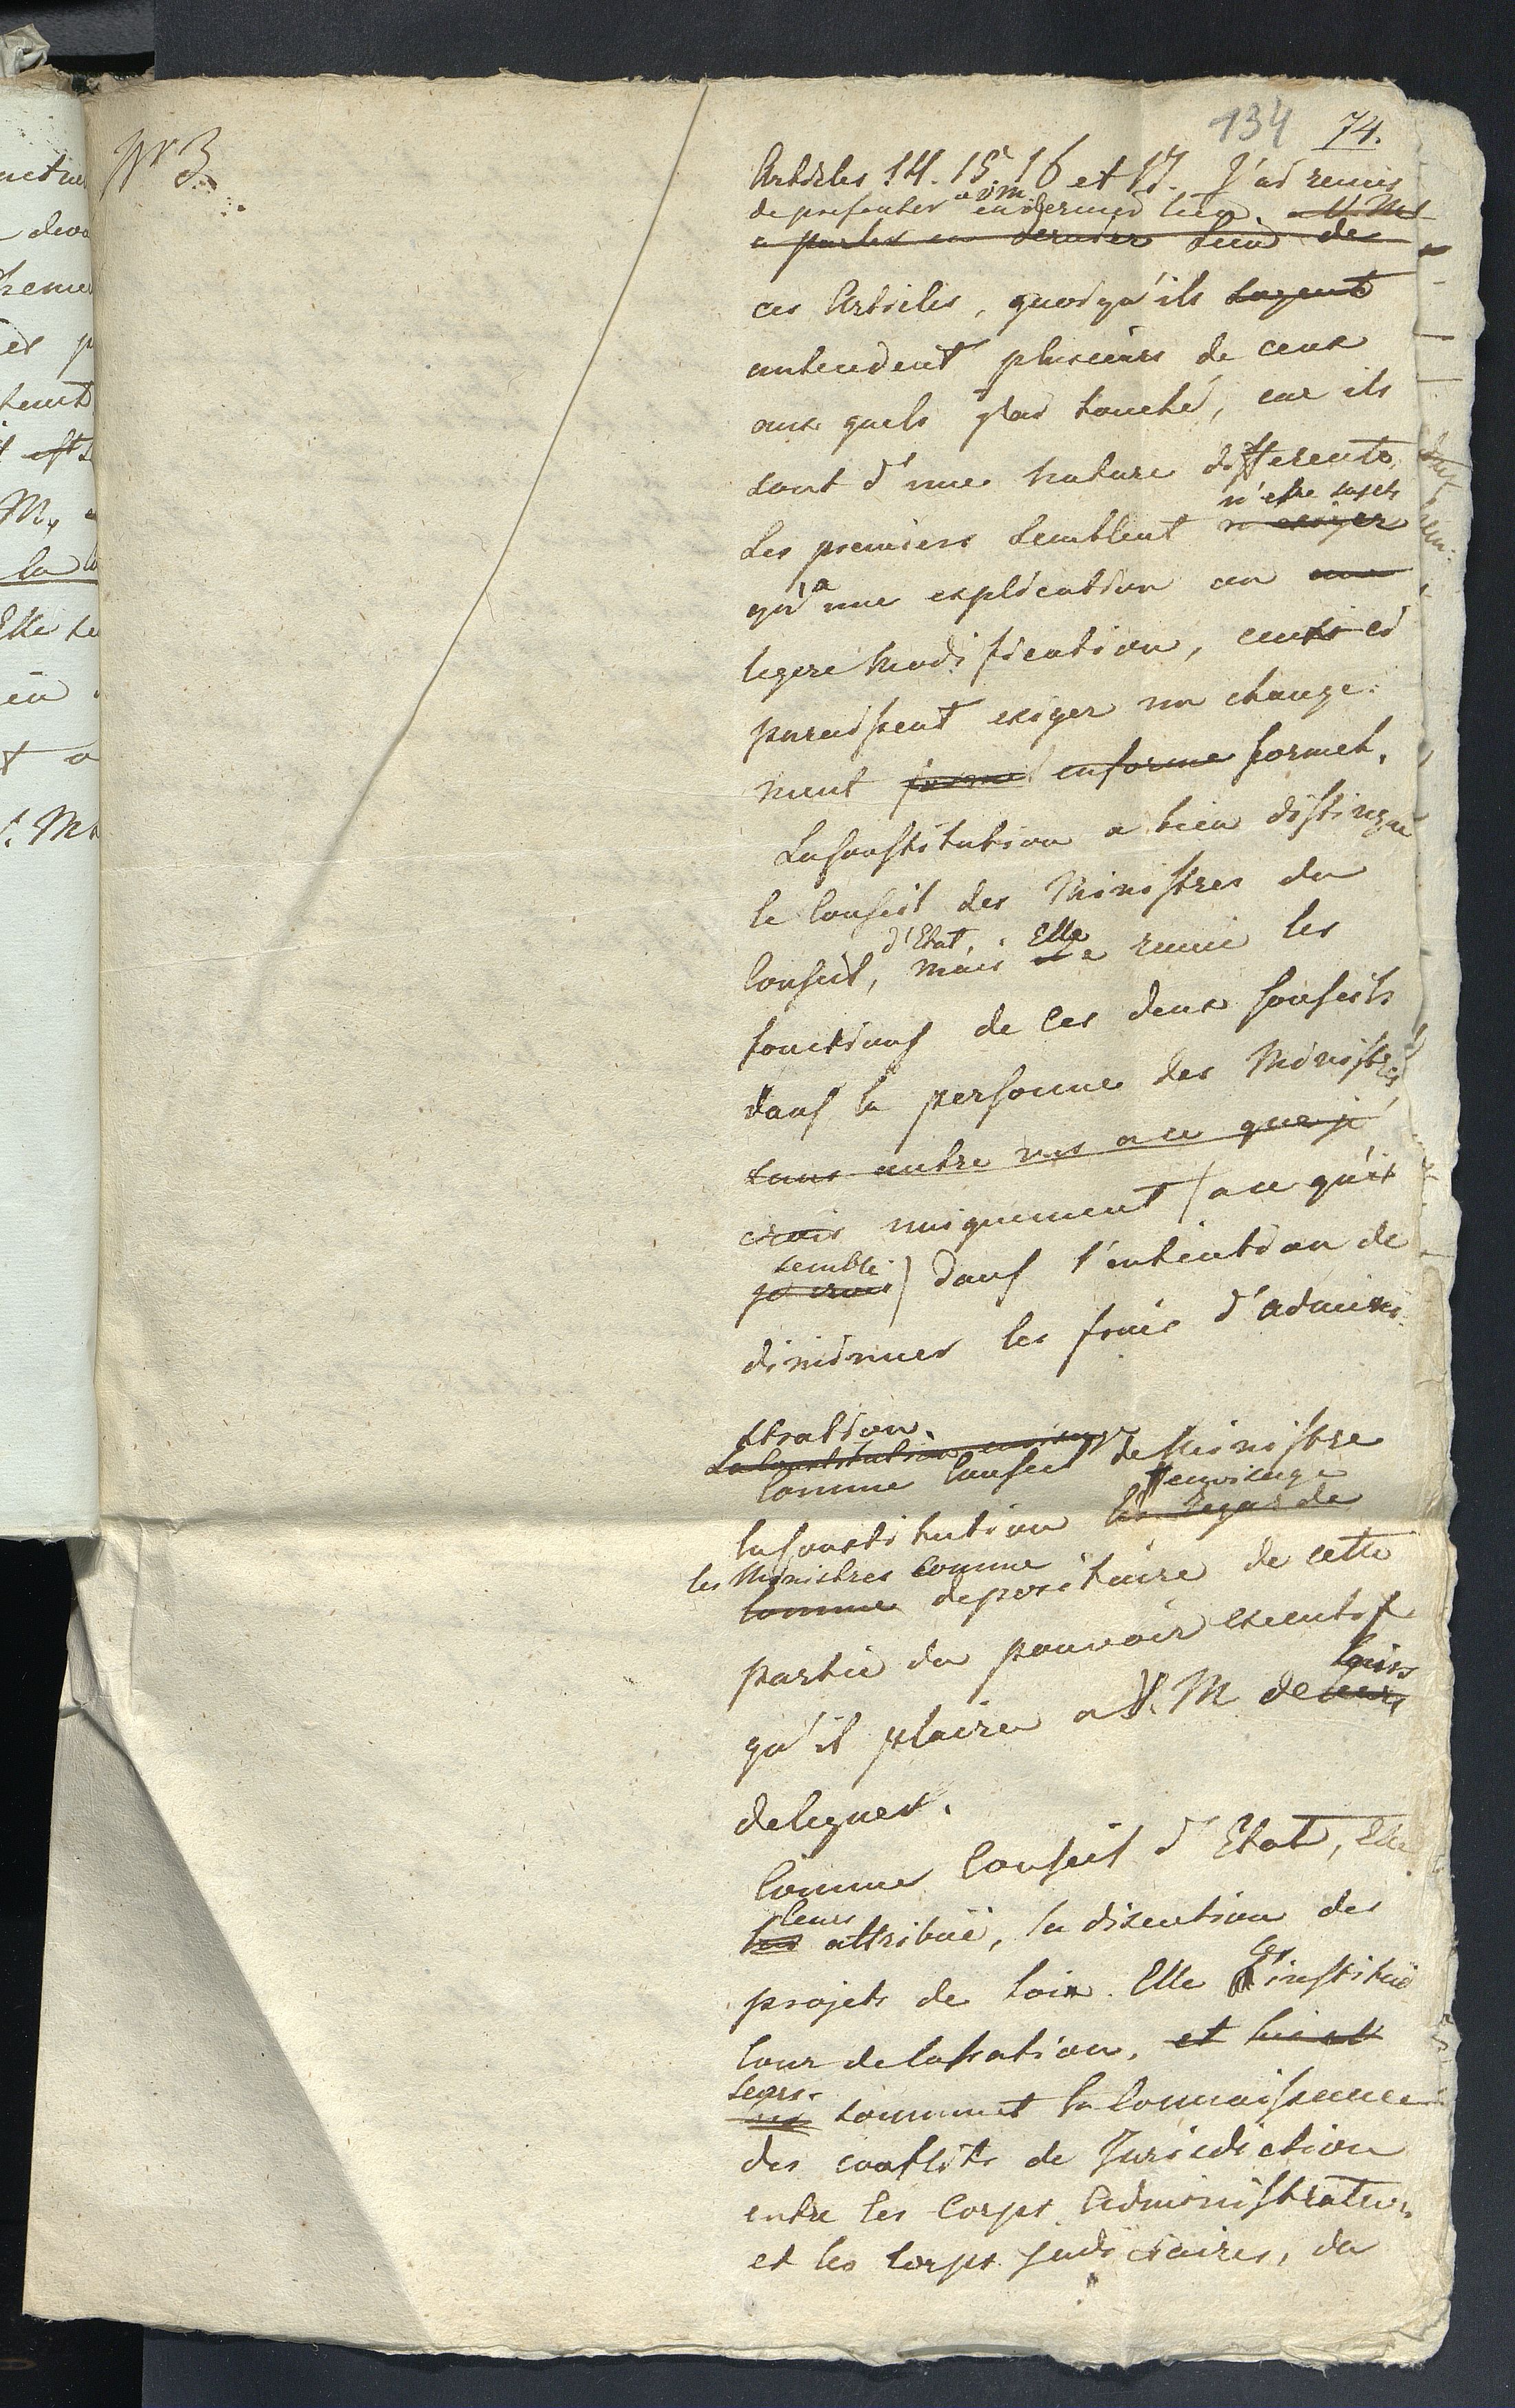 134 74.
Nr 3.
Articles 14. 15. 16 et 17. J'ai remis
de presenter a V. M. en dernier lieu. a V. M.
a parler en dernier lieu de
ces Articles, quoiqu'ils soyent
antecedent plusieurs de ceux
aux quels j'ai touché, car ils
sont d'une nature differente.
n'etre sujets
Les premiers semblent n'exiger
qu'a une explication ou une
legere modification, ceux ci
paraissent exiger un change-
ment formel en forme formel.
La Constitution a bien distingué
le Conseil des Ministres du
d'Etat. Elle
Conseil, mais a reuni les
fonctions de ces deux Conseils
dans la personne des Ministres
sans autre vus a ce que je
crois uniquement (a ce qu'il
semble
je crois) dans l'intention de
diminuer les frais d'admini-
stration.
La Constitution envisage
Comme Conseil de Ministre
envisage
la Constitution les regarde
les Ministres comme
comme depositaire de cette
partie du pouvoir executif
qu'il plaira a V. M. de leurs
deleguer.
Comme Conseil d'Etat, Elle
leurs
attribue, la discution des
projets de loix. Elle les institue
Cour de Cassation, et lui et
leurs
soummet la Connaissance
des conflits de Jurisdiction
entre les Corps Administratives
et les Corps judiciaires, du